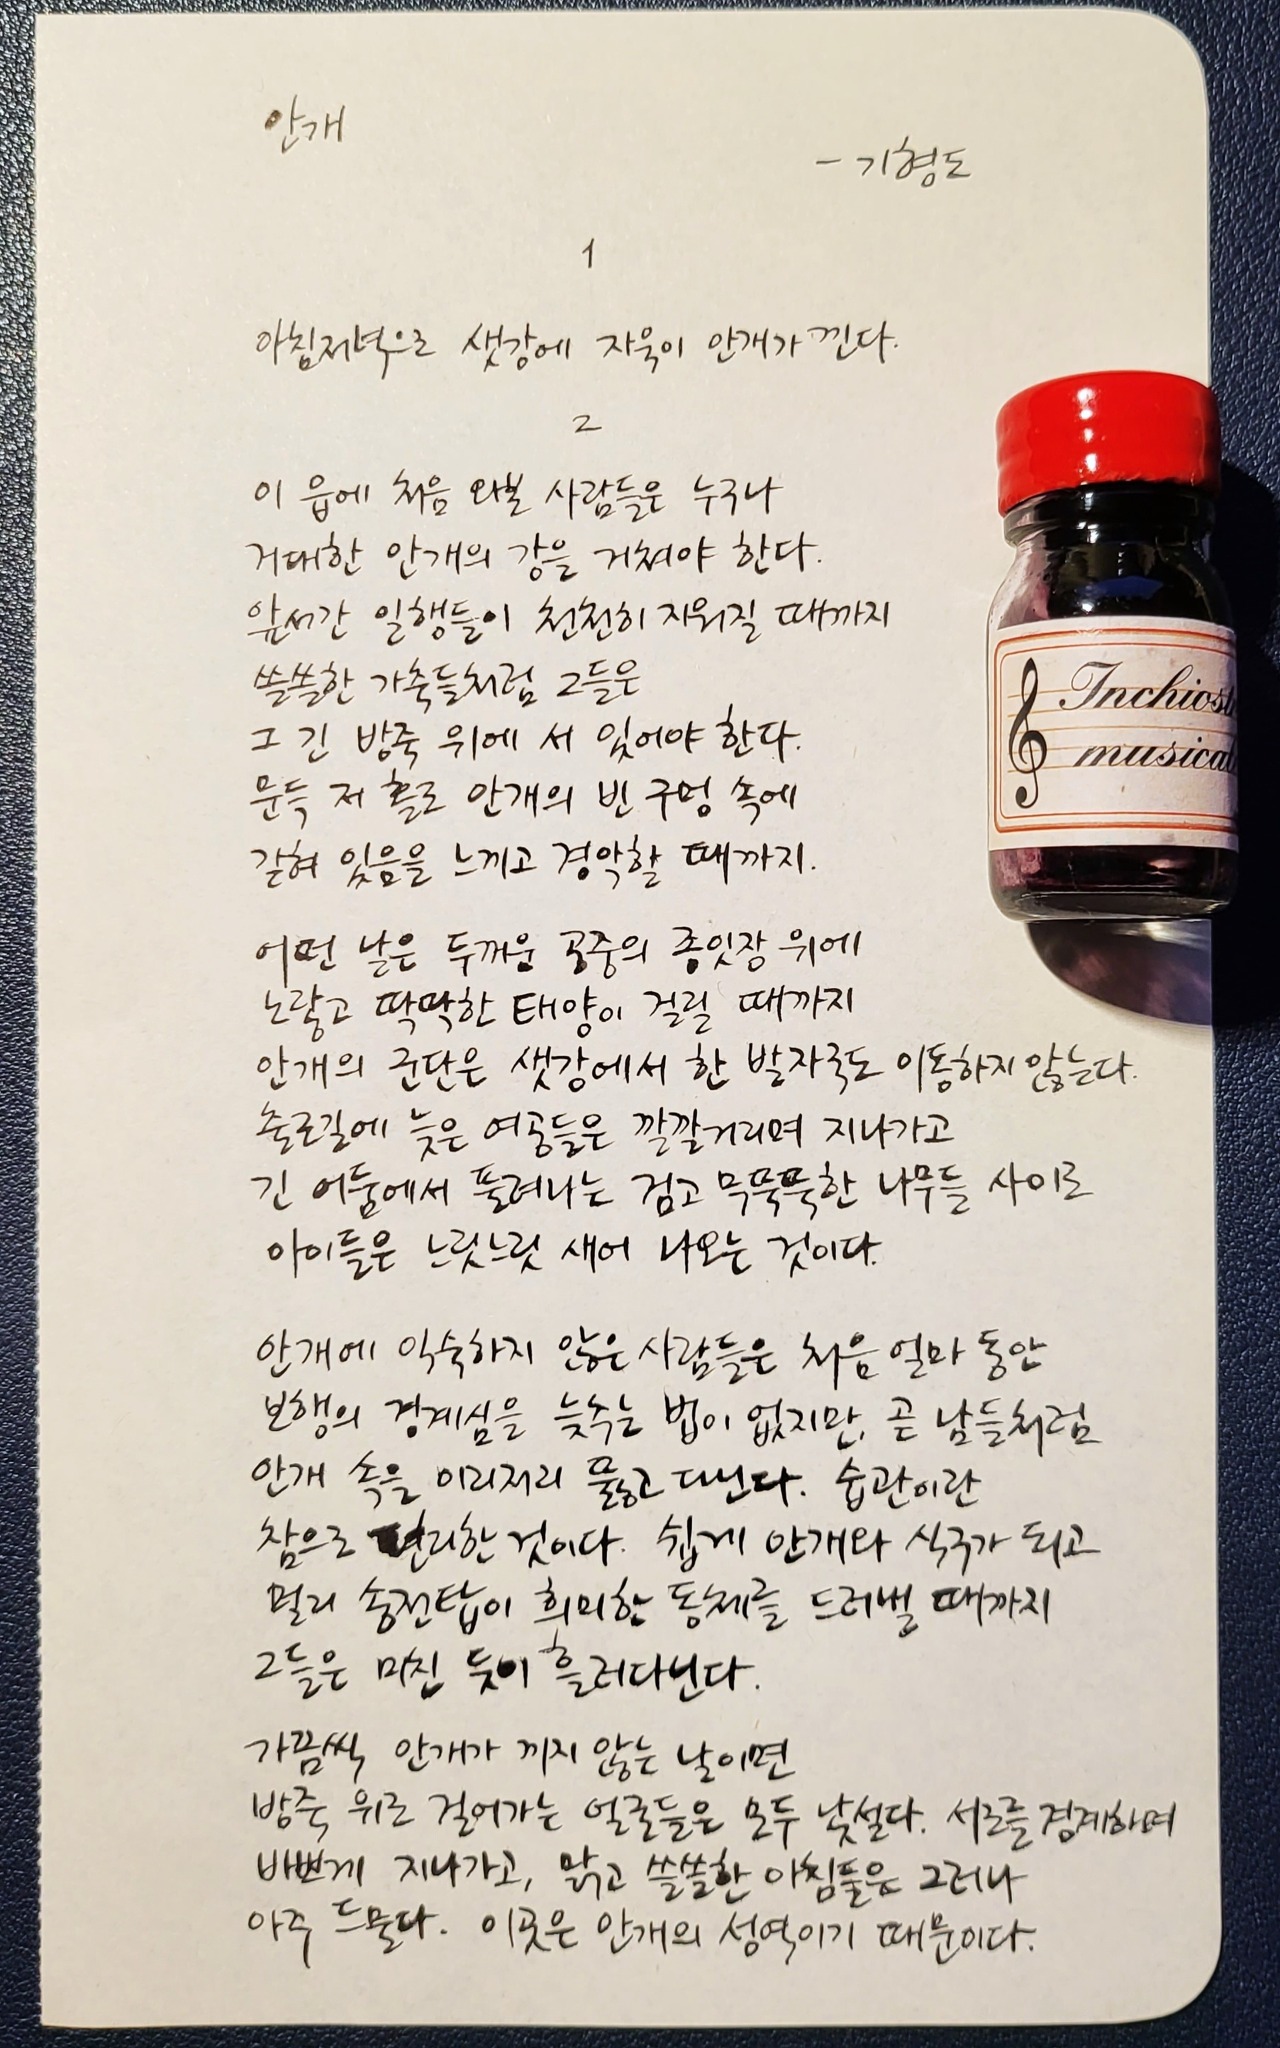 안개
- 기형도
1
아침저녁으로 샛강에 자욱이 안개가 낀다.
2
이 읍에 처음 와본 사람들은 누구나
거대한 안개의 강을 거쳐야 한다.
앞서간 일행들이 천천히 지워질 때까지
쓸쓸한 가축들처럼 그들은
그 긴 방죽 위에 서 있어야 한다.
문득 저 홀로 안개의 빈 구멍 속에
갇혀 있음을 느끼고 경악할 때까지.
어떤 날은 두꺼운 공중의 종잇장 위에
노랗고 딱딱한 태양이 걸릴 때까지
안개의 군단은 샛강에서 한 발자국도 이동하지 않는다.
출근길에 늦은 여공들은 깔깔거리며 지나가고
긴 어둠에서 풀려나는 검고 무뚝뚝한 나무들 사이로
아이들은 느릿느릿 새어 나오는 것이다.
안개에 익숙하지 않은 사람들은 처음 얼마 동안
보행의 경계심을 늦추는 법이 없지만, 곧 남들처럼
안개 속을 이리저리 뚫고 다닌다. 습관이란
참으로 편리한 것이다. 쉽게 안개와 식구가 되고
멀리 송전탑이 희미한 동체를 드러낼 때까지
그들은 미친 듯이 흘러다닌다.
가끔씩 안개가 끼지 않는 날이면
방죽 위로 걸어가는 얼굴들은 모두 낯설다. 서로를 경계하며
바쁘게 지나가고, 맑고 쓸쓸한 아침들은 그러나
아주 드물다. 이곳은 안개의 성역이기 때문이다.
Inchiost
musical